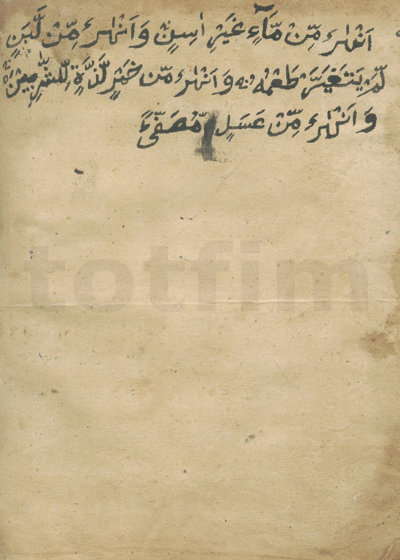 اَنْهٰرٌ مِّنْ مَّآءٍ غَيْرِ اٰسِنٍ وَاَنْهٰرٌ مِّنْ لَّبَنٍ
لَّمْ يَتَغَيَّرْ طَعْمُهٗ وَاَنْهٰرٌ مِّنْ خَمْرٍ لَّذَّةٍ لِّلشّٰرِبِيْنَ
وَاَنْهٰرٌ مِّنْ عَسَلٍ مُّصَفًّى
totfim